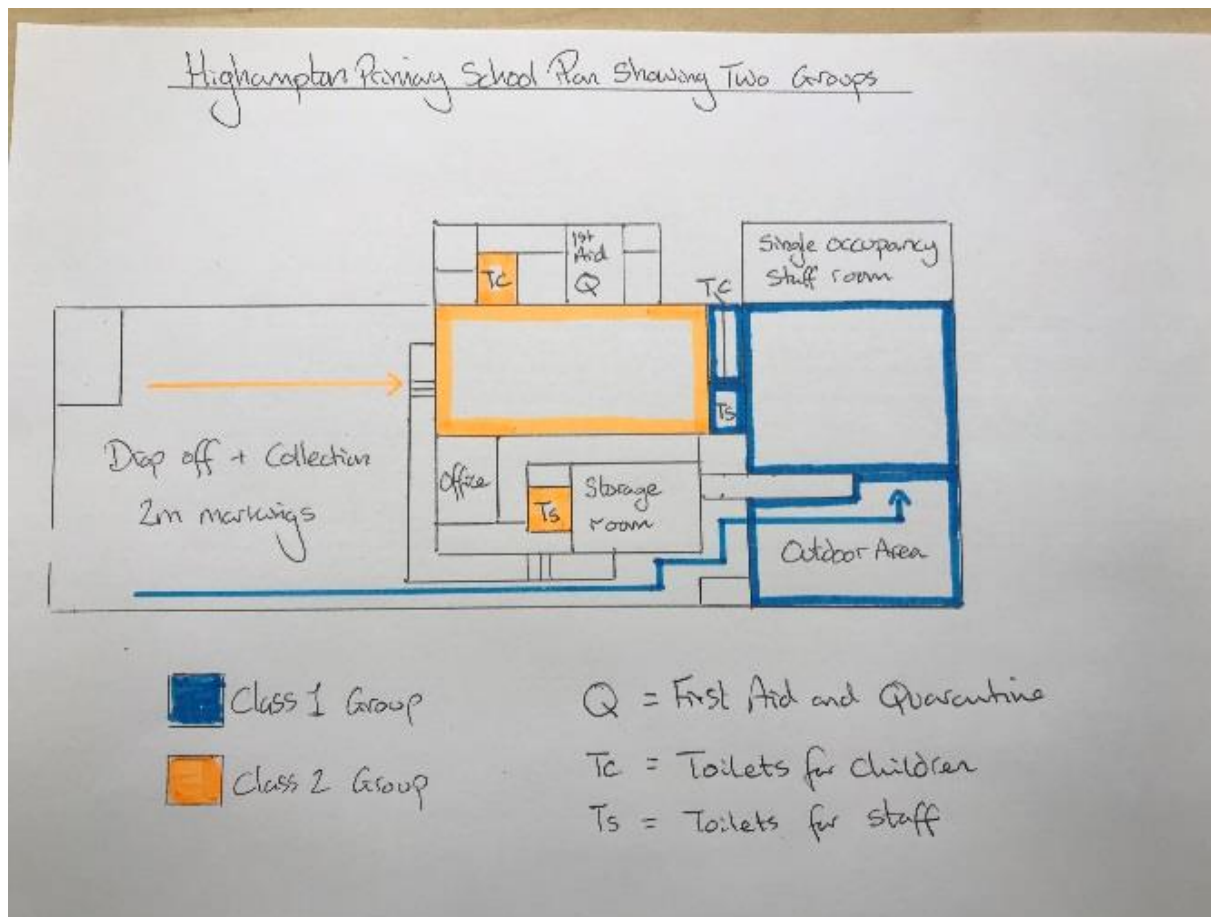 Highampton Primary School Plan Showing Two Groups
1st
Aid
Q
Tc
Tc
Single occupancy
staff room
Ts
Drop off + Collection
2m markings
Office
Ts
Storage
room
Outdoor Area
Class 1 Group
Class 2 Group
Q = First Aid and Quarantine
Tc = Toilets for children
Ts = Toilets for staff